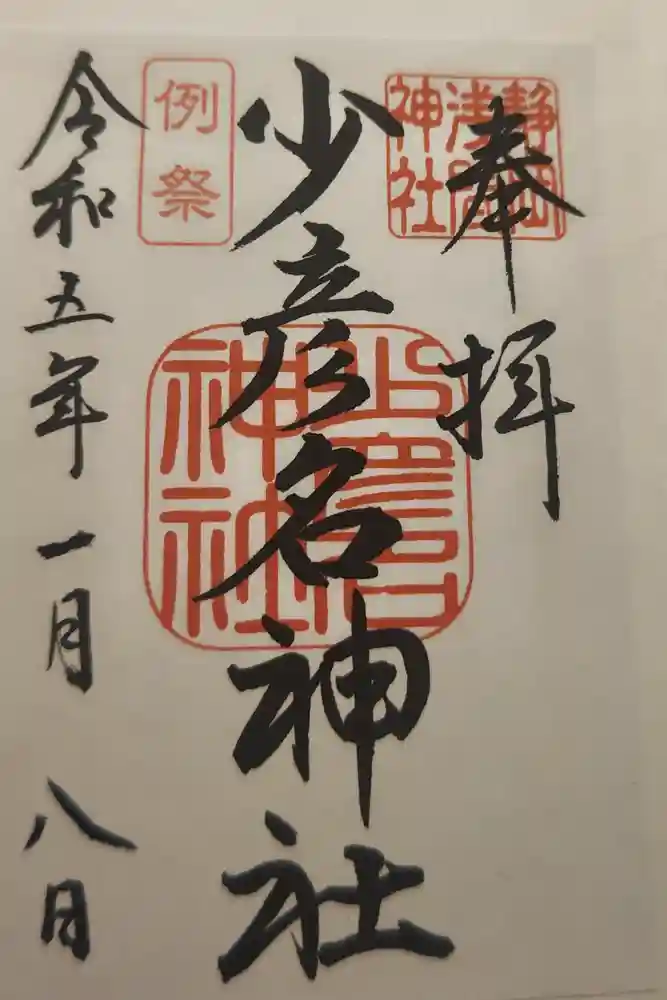 奉拝
静岡
浅間
神社
少彦名神社
少彦名
神社
例祭
令和五年一月八日